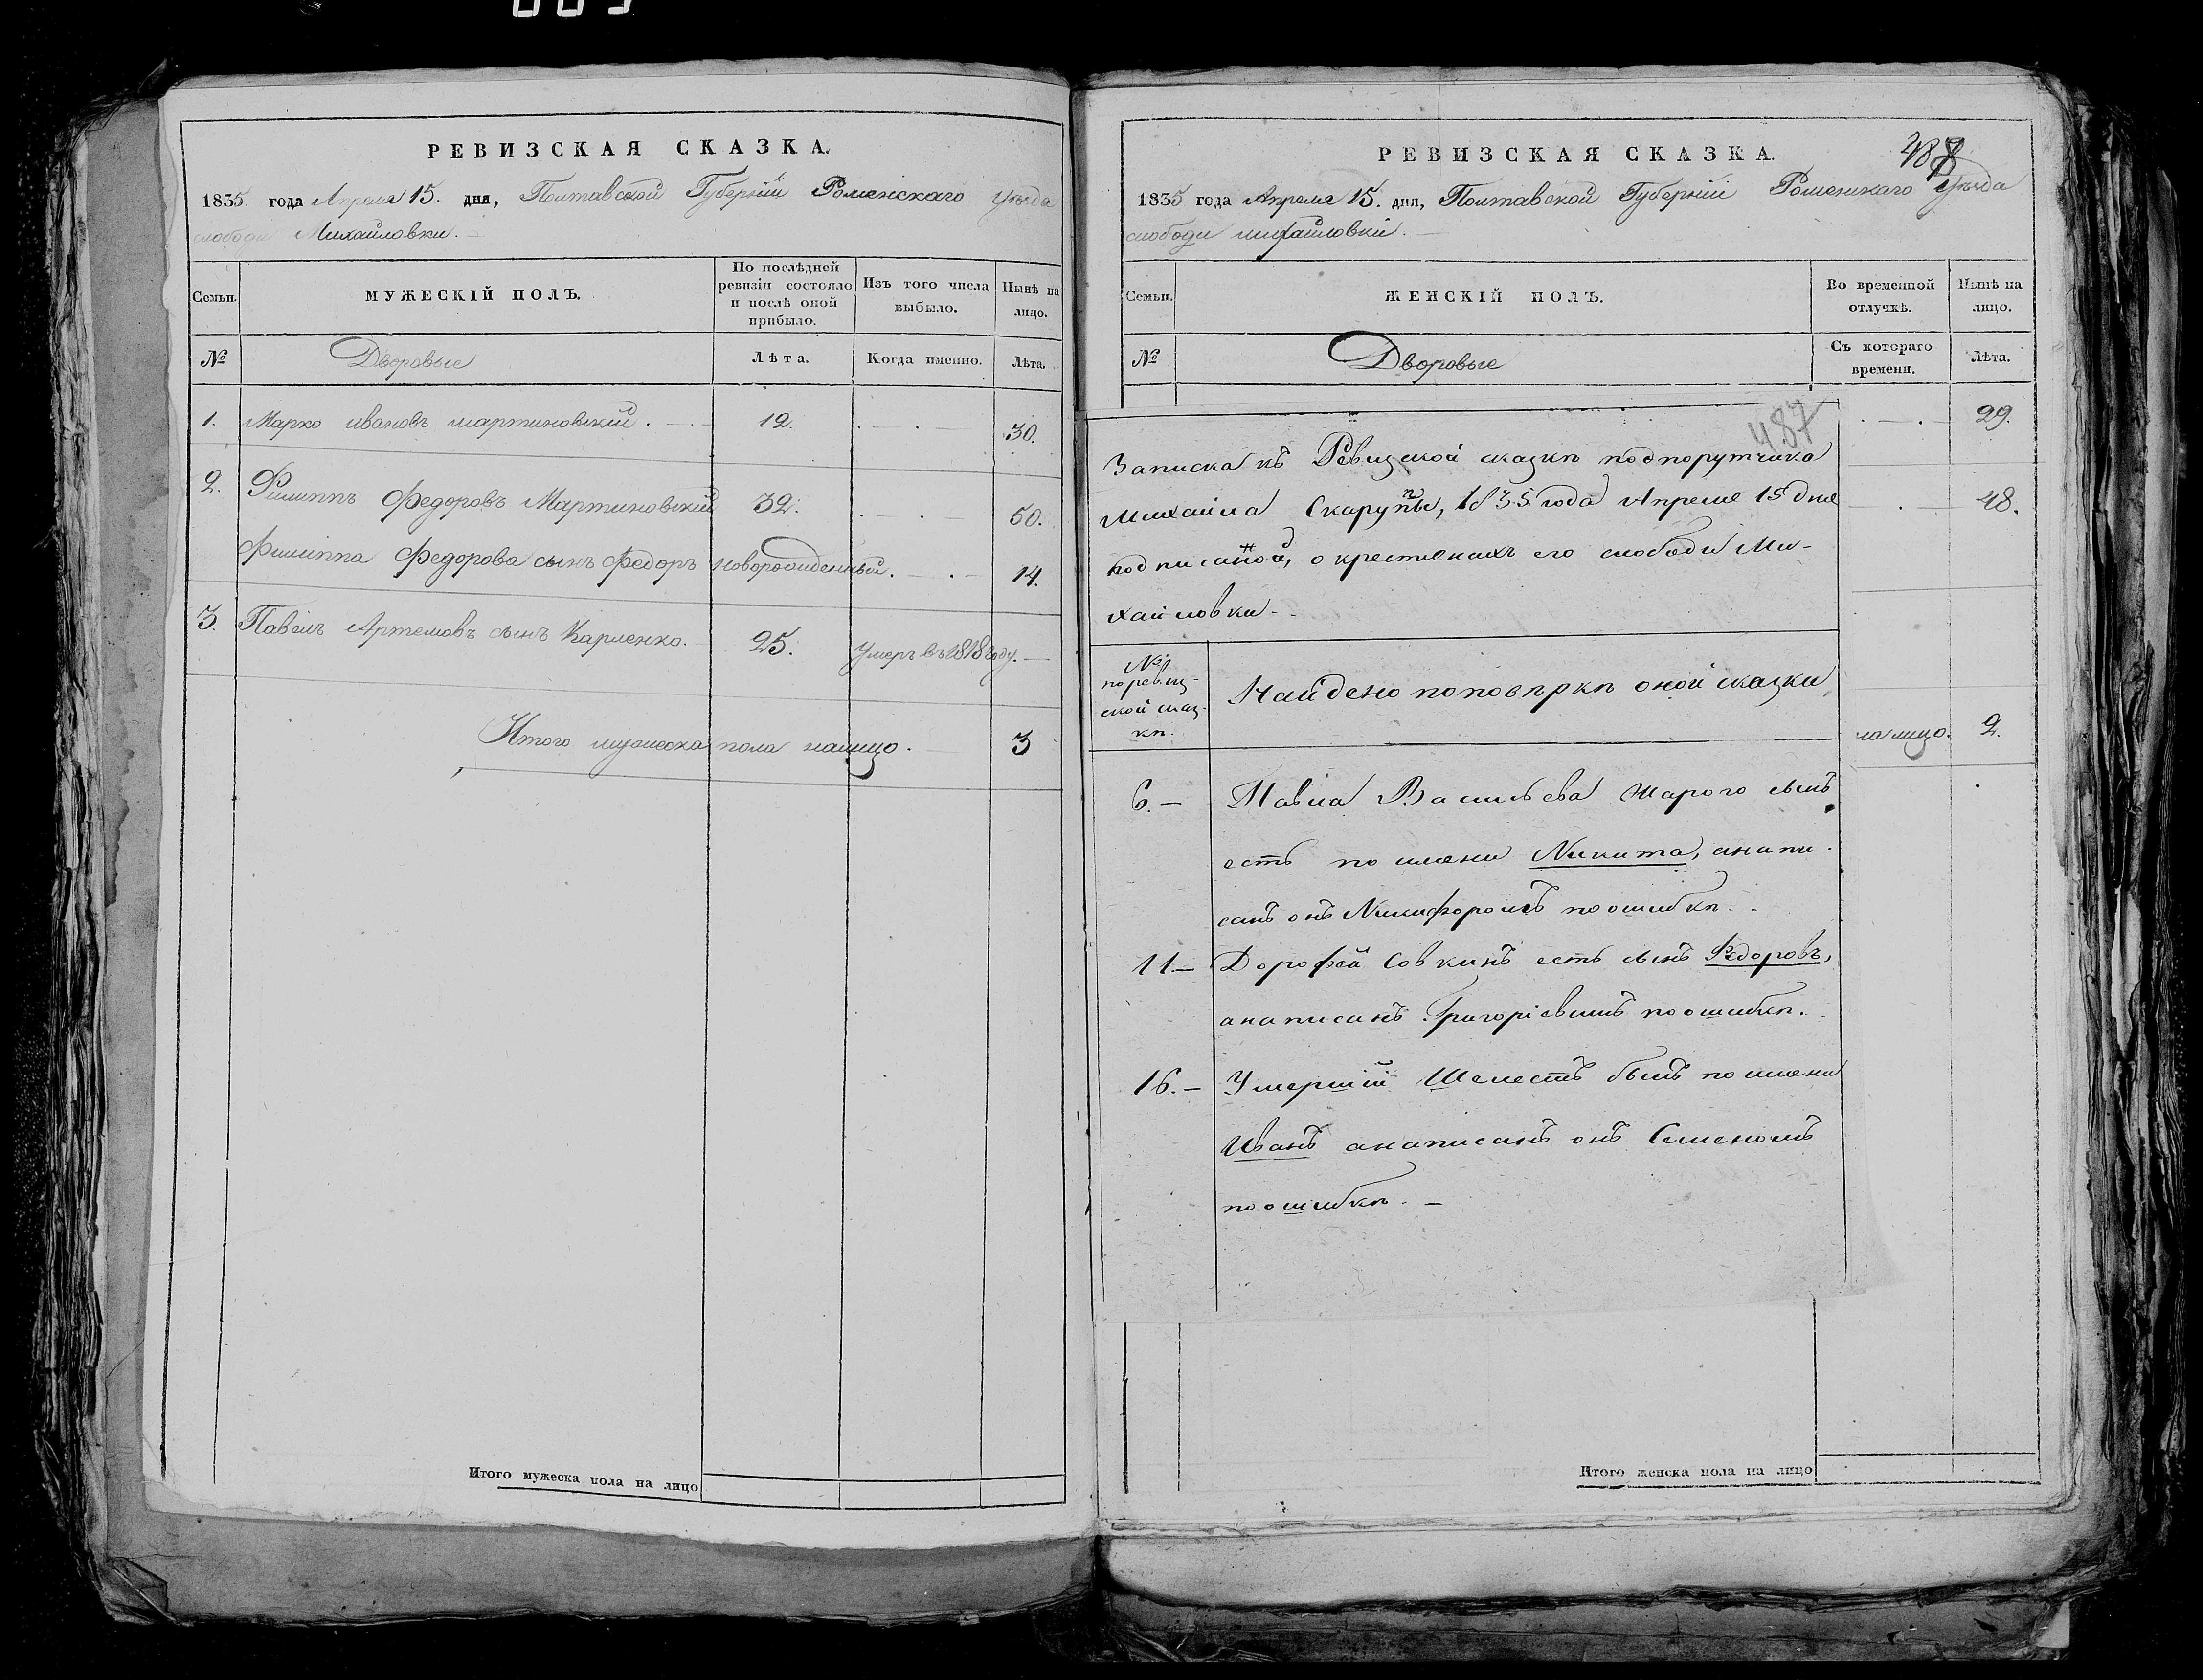 РЕВИЗСКАЯ СКАЗКА.
1835 года Апреля 15. дня, Полтавской Губерніи Роменскаго Уѣзда
слободи Михайловки.
Семьи.
МУЖЕСКІЙ ПОЛЪ.
По послѣдней
ревизіи состояло
и послѣ оной
прибыло.
Изъ того числа
выбыло.
Нынѣ на
лицо.
№
Дворовые
Лѣта.
Когда именно.
Лѣта.
1. Марко ивановъ мартиновскій. 12. 30.
2. Филиппъ Федоровъ Мартиновскій 32. 50.
Филиппа Федорова сынъ Федоръ новорожденный. 14.
3. Павелъ Артемовъ сынъ Карпенко. 25. Умеръ въ 1818 году.
Итого мужеска пола налицо. 3
Итого мужеска пола на лицо
РЕВИЗСКАЯ СКАЗКА.
488
1835 года Апреля 15. дня, Полтавской Губерніи Роменскаго Уѣзда
слободи михайловки.
Семьи.
ЖЕНСКІЙ ПОЛЪ.
Во временной
отлучкѣ.
Нынѣ на
лицо.
№
Дворовые
Съ котораго
времени.
Лѣта.
29.
48.
на лицо. 2.
487
Записка къ Ревизской сказкѣ подпорутчика
Михаила Скарупы, 1835 года Апреля 15 дня
подписаной, о крестянахъ его слободи Ми-
хайловки.
№
по ревиз-
ской сказ-
кѣ.
Найдено по повѣркѣ оной сказки
6.— Павла Васильева Шарого сынъ
есть по имени Никита, а напи-
санъ онъ Никифоромъ по ошибкѣ.
11.— Дорофей Совкинъ есть сынъ Федоровъ,
а написанъ Григоріевымъ по ошибкѣ.
16.— Умершій Шелестъ былъ по имени
Иванъ а написанъ онъ Семеномъ
по ошибкѣ. —
Итого женска пола на лицо